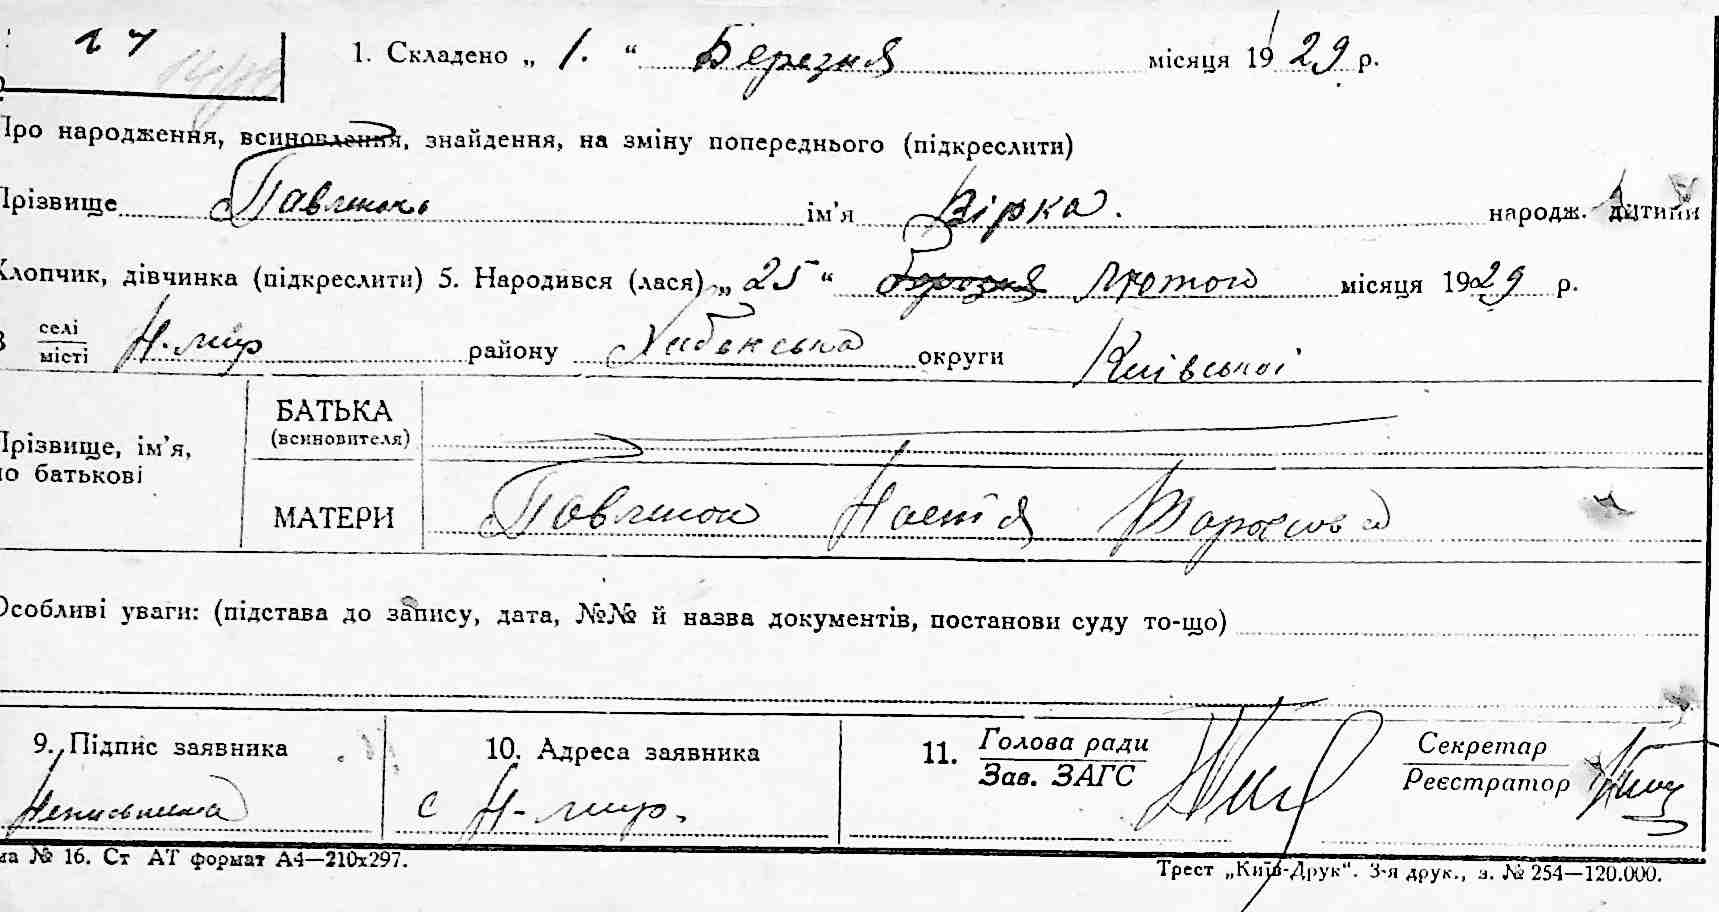 24
1. Складено „ 1. “ Березня місяця 1929 р.
Про народження, всиновлення, знайдення, на зміну попереднього (підкреслити)
Прізвище Павленко ім’я Вірка. народж. дитини
Хлопчик, дівчинка (підкреслити) 5. Народився (лася) „ 25 “ березня Лютого місяця 1929 р.
В селі/місті Н-мир району Хабенська округи Київської
Прізвище, ім’я, по батькові
БАТЬКА (всиновителя)
МАТЕРИ Павленко Настя Тарасовна
Особливі уваги: (підстава до запису, дата, №№ й назва документів, постанови суду то-що)
9. Підпис заявника 10. Адреса заявника 11. Голова ради/Зав. ЗАГС Секретар/Реєстратор
Неписьменна с Н-мир.
№ 16. Ст АТ формат А4—210х297.
Трест „Київ-Друк“. 3-я друк., з. № 254—120.000.